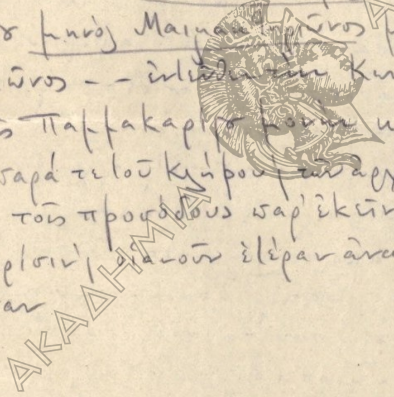 μηνός Μαιμακτηριῶνος
ῶνος -- ἐντεῦθεν τὴν
Παμμακαρίστου μονὴν κ
παρά τε τοῦ κλήρου, τῶν ἀρχ
τοῖς προσόδους παρ' ἐκείν
ρισιν, οἱανοῦν ἑτέραν ἀνα
αν
ΑΚΑΔΗΜΙΑ